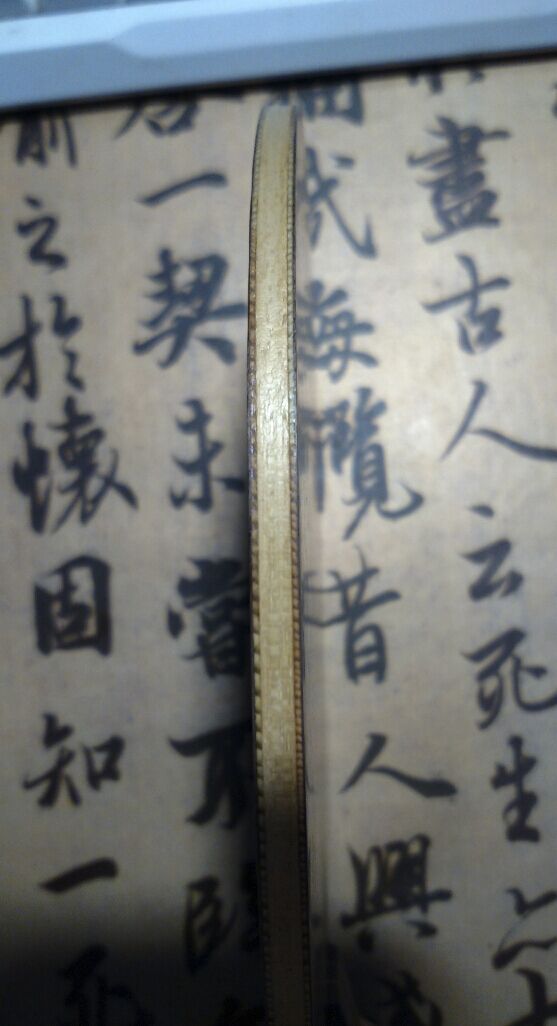 盡古人云死生亦
哉每攬昔人興感
合一契未嘗不臨
之於懷固知一死